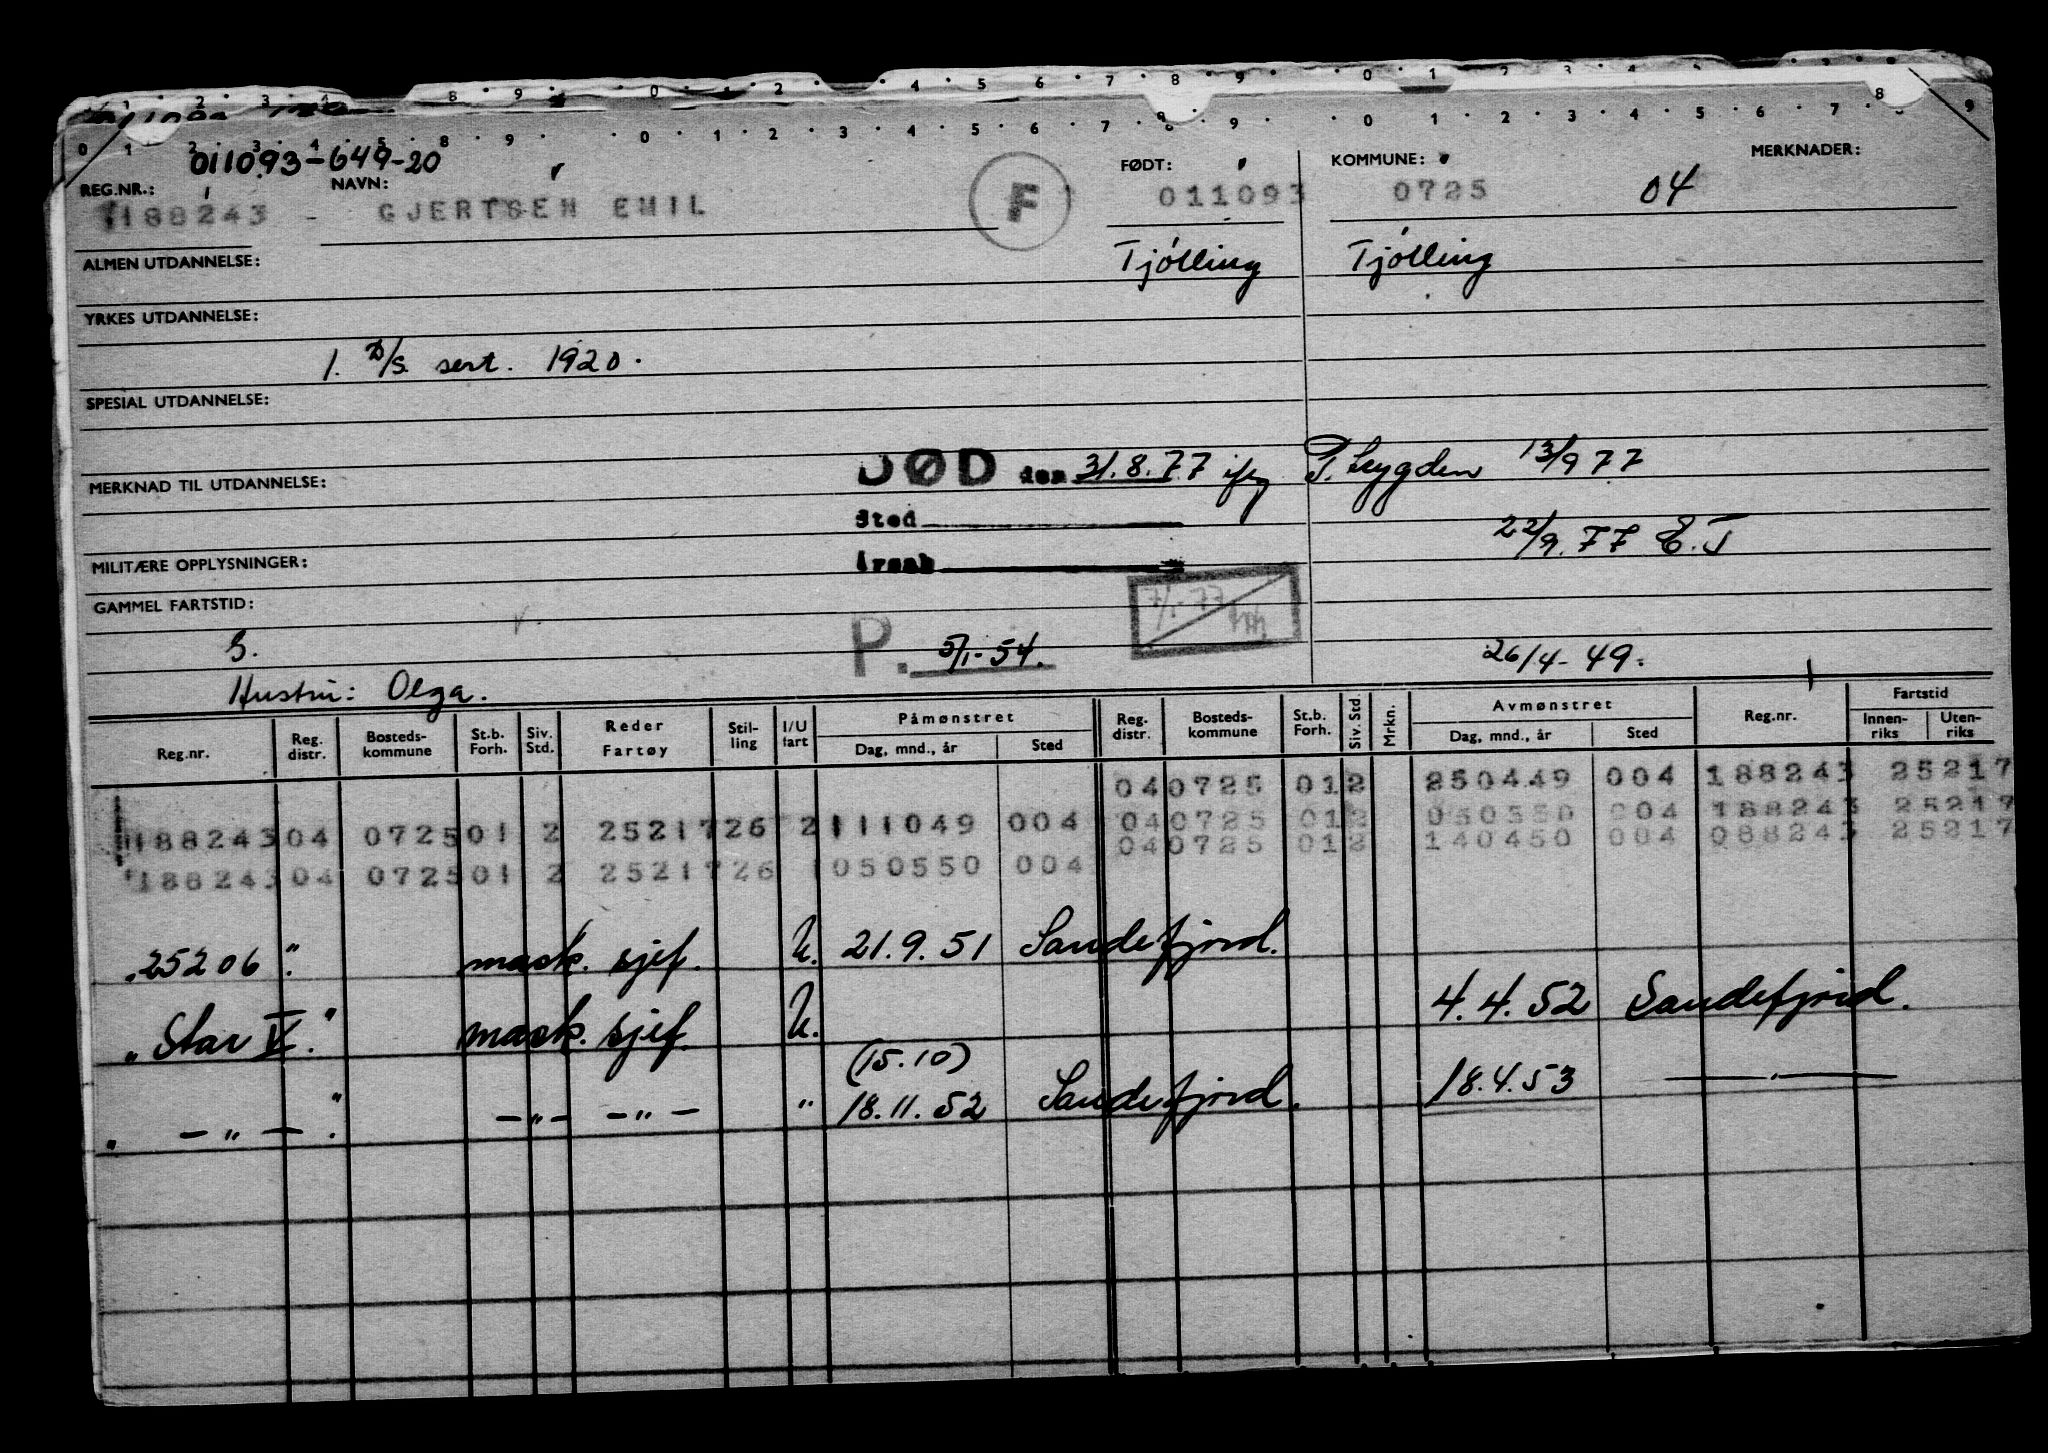 011093-649-20
REG.NR.: NAVN: FØDT: KOMMUNE: MERKNADER:
188243 - GJERTSEN EMIL F 011093 0725 04
ALMEN UTDANNELSE: Tjølling Tjølling
YRKES UTDANNELSE:
1. D/S sert. 1920.
SPESIAL UTDANNELSE:
DØD den 31.8.77 ifg P. trygden 13/9 77
MERKNAD TIL UTDANNELSE:
Sted 22/9.77 E.T
MILITÆRE OPPLYSNINGER: Årsak
GAMMEL FARTSTID: 7/1-77
G. P. 5/1-54. 26/4-49.
Hustru: Olga.
Reg.nr. Reg. distr. Bosteds-kommune St.b. Forh. Siv. Std. Reder Fartøy Stil-ling I/U fart Påmønstret Dag, mnd., år Sted Reg. distr. Bosteds-kommune St.b. Forh. Siv. Std. Mrkn. Avmønstret Dag, mnd., år Sted Reg.nr. Fartstid Innen-riks Uten-riks
040725 012 250449 004 188243 25217
188243 04 0725 01 2 25217 26 2 111049 004 040725 012 050550 004 188243 25217
040725 012 140450 004 088243 25217
188243 04 0725 01 2 25217 26 050550 004
"25206" mask. sjef. U. 21.9.51 Sandefjord.
"Star V." mask. sjef. U. 4.4.52 Sandefjord.
(15.10)
" — " — . " — " — — " — " 18.11.52 Sandefjord. 18.4.53 — " —